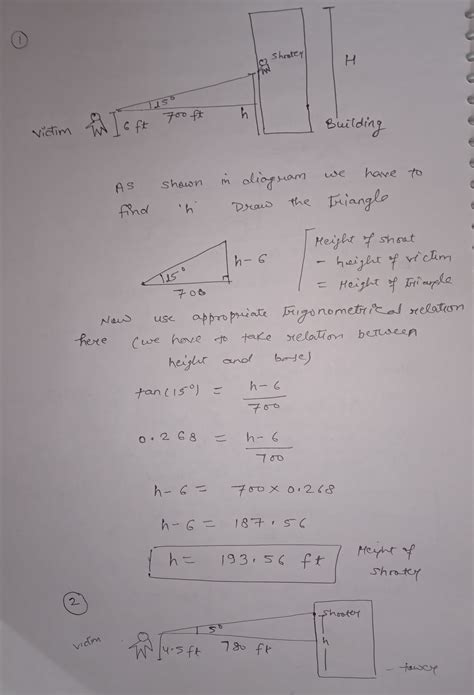 1
shooter
H
15°
700 ft
h
victim
6 ft
Building
As shown in diagram we have to
find 'h' Draw the triangle
15°
h-6
700
Height of shoot
- height of victim
= Height of triangle
Now use appropriate trigonometrical relation
here (we have to take relation between
height and base)
tan(15°) = h-6
700
0.268 = h-6
700
h-6 = 700 x 0.268
h-6 = 187.56
h = 193.56 ft
Height of
shooter
2
shooter
5°
h
victim
4.5 ft
780 ft
- tower